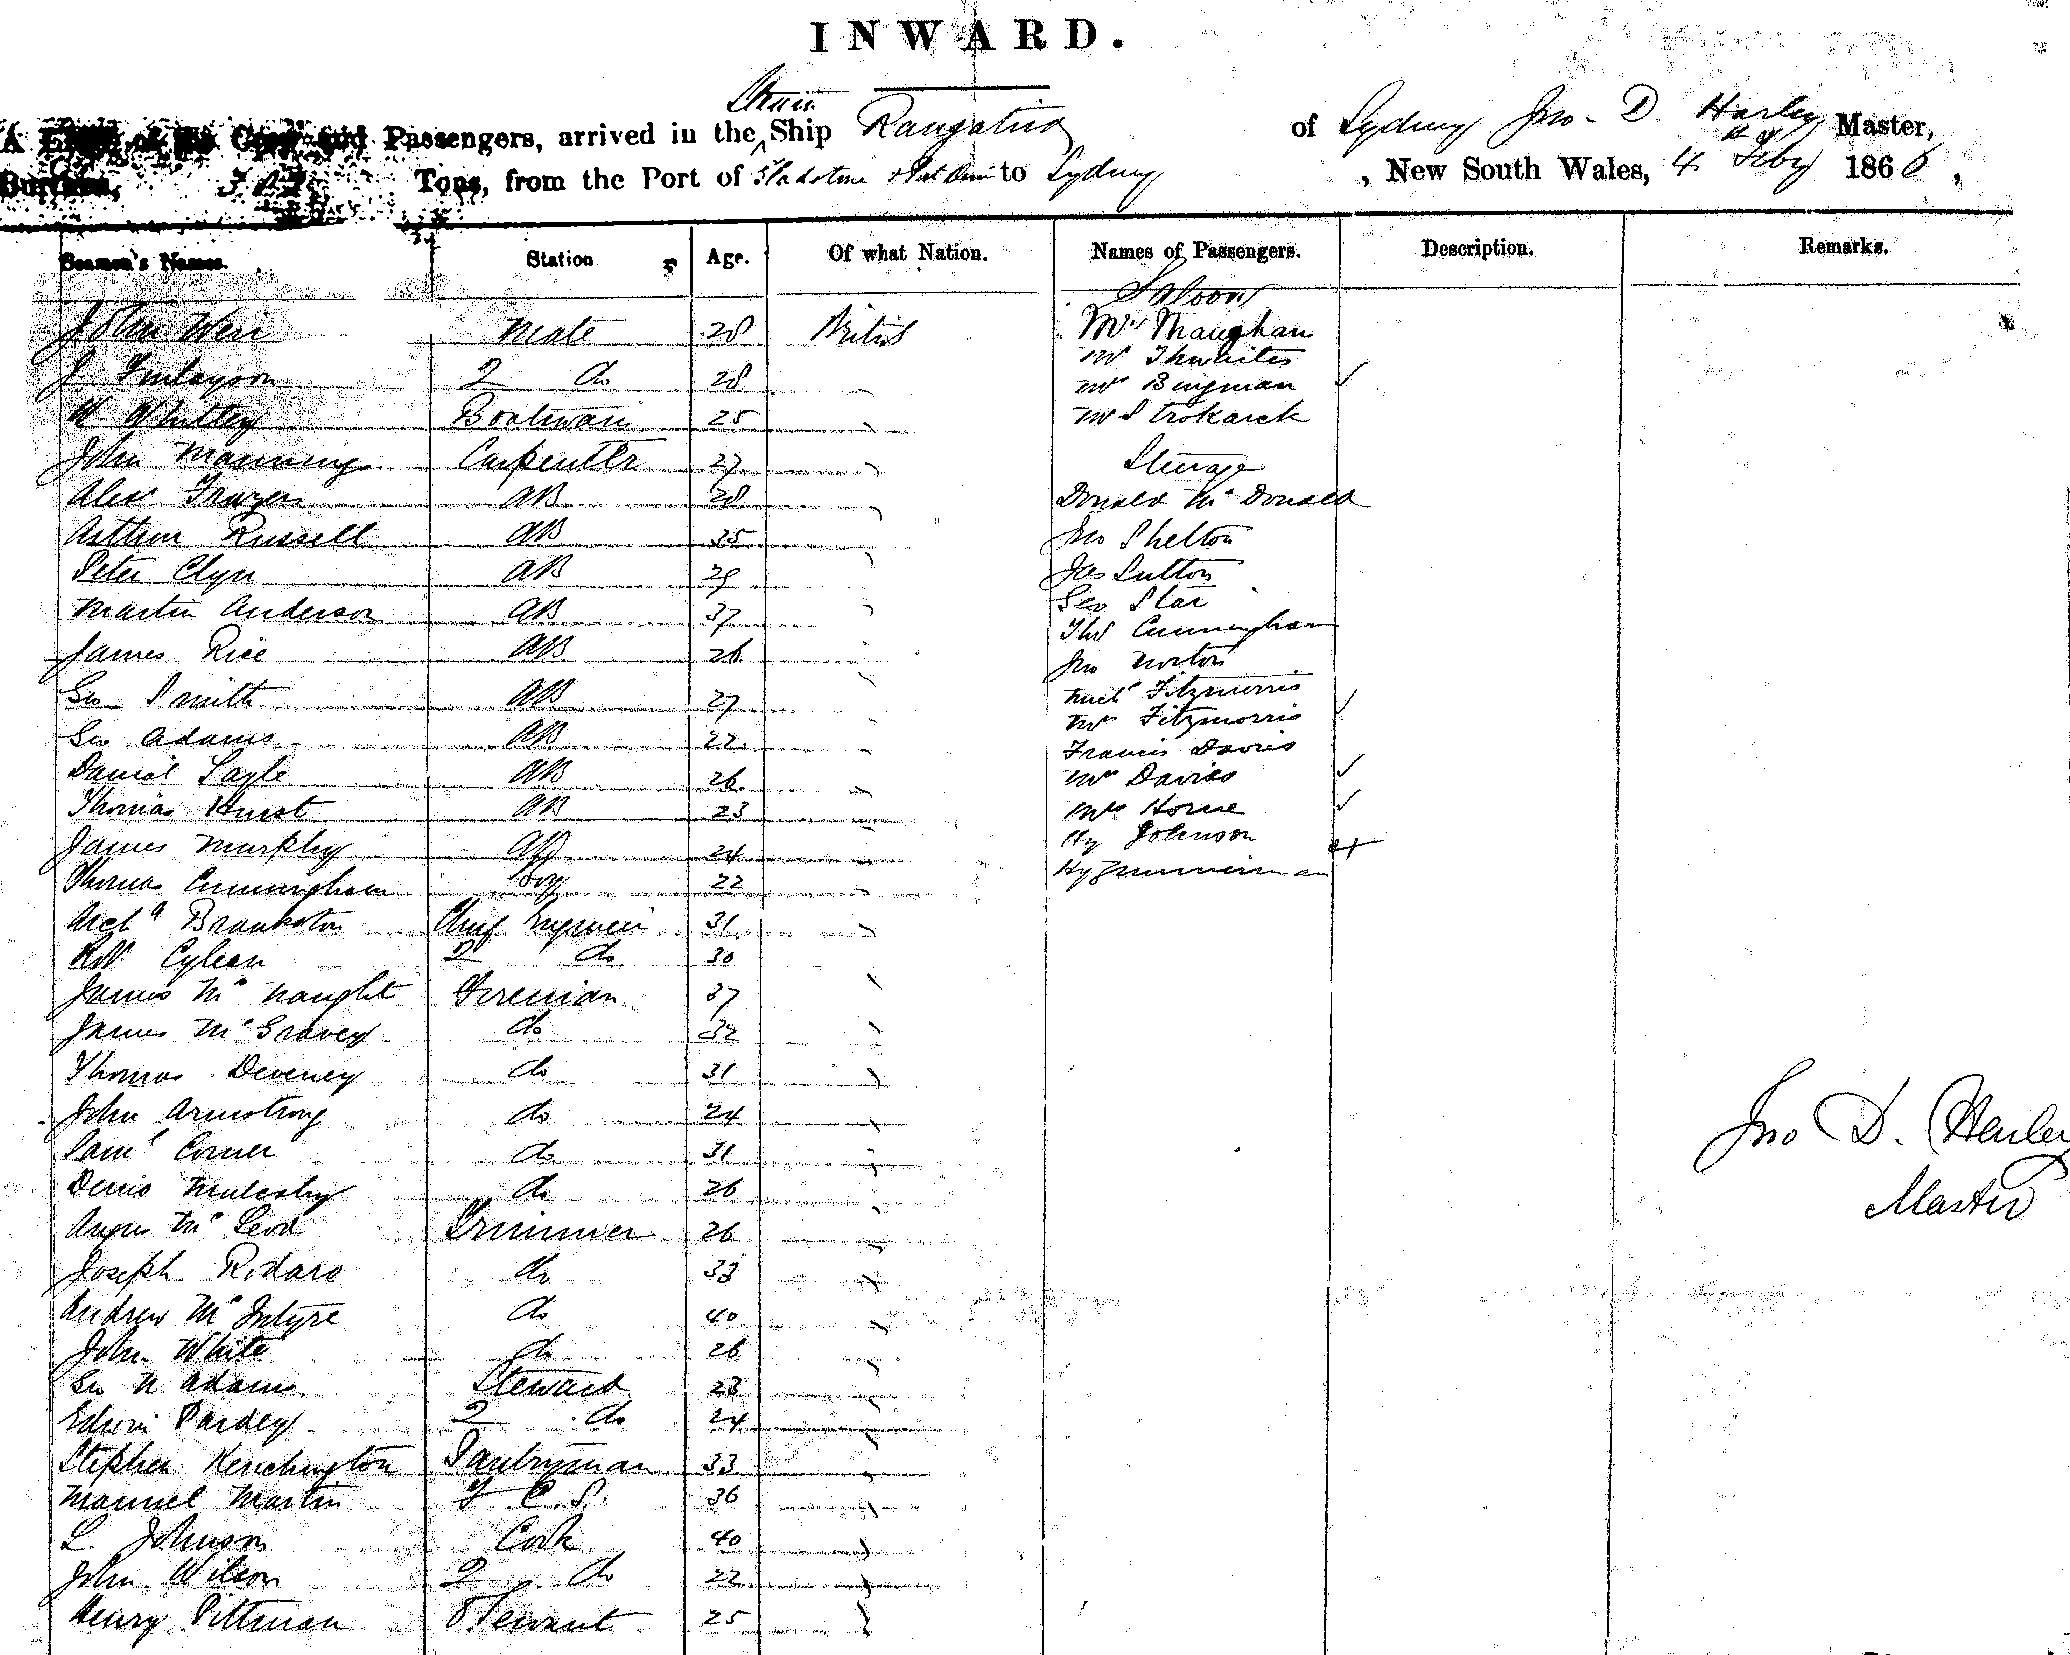 INWARD.
Steam
A List of the Crew and Passengers, arrived in the Ship Rangatira of Sydney Jno. D. Harley Master,
Burthen, Tons, from the Port of to Sydney, New South Wales, 4th Feby 1866,
Seamen's Names. Station Age. Of what Nation. Names of Passengers. Description. Remarks.
Saloon
John Weir Mate 28 British Mrs Maughan
Mr Thwaites
J Finlayson 2 do 28 Mr Bingman
W Whitley Boatswain 25
John Manning Carpenter 27 Steerage
Alexr Frazer AB 28 Donald McDonald
Arthur Russell AB 35 Jno Shelton
Peter Clyn AB 29 Jas Sutton
Geo Star
Martin Anderson AB 37 Thos Cunningham
James Rice AB 26 Jno Norton
Geo Smith AB 27 Michl Fitzmorris
Mrs Fitzmorris
Geo Adams AB 22 Francis Davies
Daniel AB 26 Mrs Davies
Thomas Hurst AB 23 Mrs Horne
Hy Johnson
James Murphy AB 24
Thomas Cunningham Boy 22 Hy Zimmerman
Archd Brankston Chief Engineer 31
Robt 2 do 30
James McNaught Fireman 37
James McGravey do 32
Thomas Deveney do 31
John Armstrong do 24
Saml Corner do 31
Jno D. Harley
Denis do 26
Master
Angus McLeod Trimmer 26
Joseph do 33
Andrew McIntyre do 40
John White do 26
Geo N Adams Steward 23
Edwin Pardey 2 do 24
Stephen Kenchington Pantryman 33
Manuel Martin F. C. S. 36
L. Johnson Cook 40
John Wilson 2 do 22
Henry Pittman 25